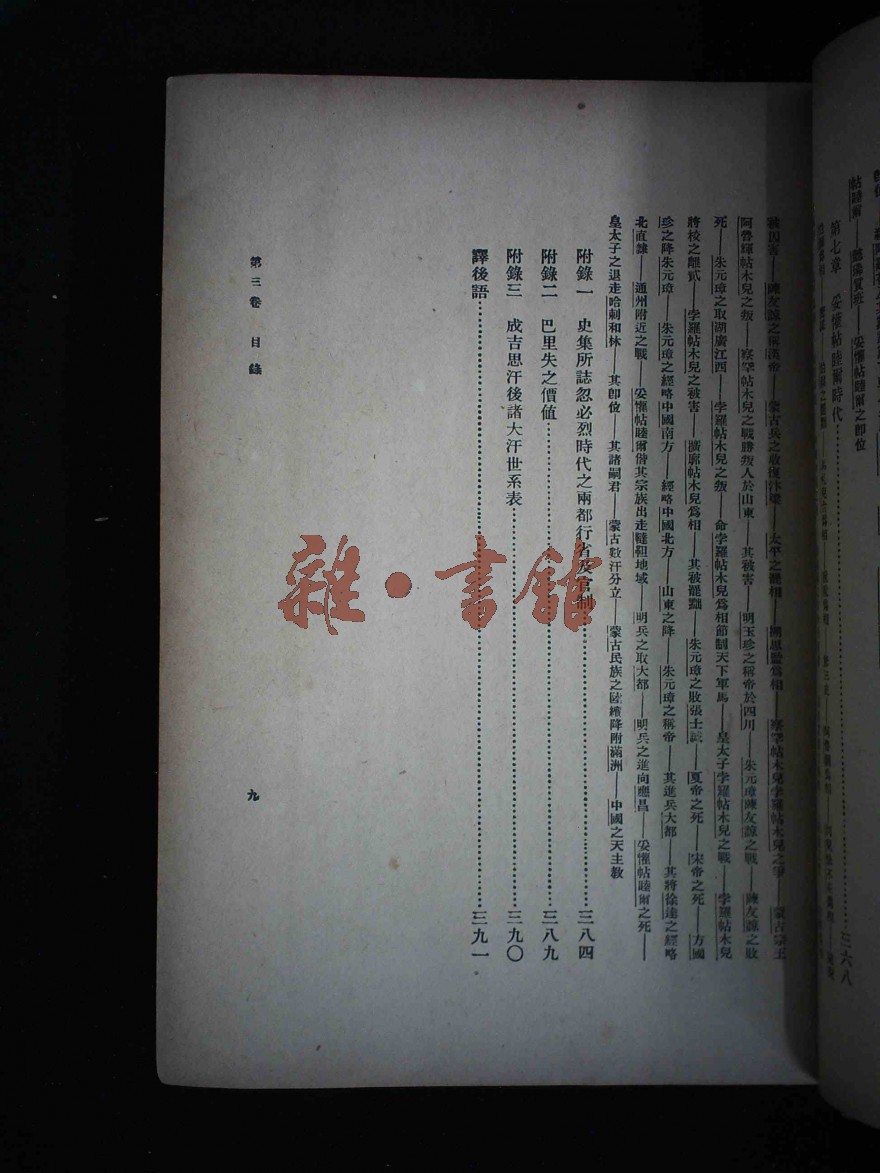 帖睦爾——懿璘質班——妥懽帖睦爾之卽位
第七章 妥懽帖睦爾時代……三六八
被囚害——陳友諒之稱漢帝——蒙古兵之收復汴梁——太平之罷相——搠思監爲相——察罕帖木兒孛羅帖木兒之爭——蒙古宗王
阿魯輝帖木兒之叛——察罕帖木兒之戰勝叛人於山東——其被害——明玉珍之稱帝於四川——朱元璋陳友諒之戰——陳友諒之敗
死——朱元璋之取湖廣江西——孛羅帖木兒之叛——命孛羅帖木兒爲相節制天下軍馬——皇太子孛羅帖木兒之戰——孛羅帖木兒
將校之離貳——孛羅帖木兒之被害——擴廓帖木兒爲相——其被罷黜——朱元璋之敗張士誠——夏帝之死——宋帝之死——方國
珍之降朱元璋——朱元璋之經略中國南方——經略中國北方——山東之降——朱元璋之稱帝——其進兵大都——其將徐達之經略
北直隸——通州附近之戰——妥懽帖睦爾偕其宗族出走韃靼地域——明兵之取大都——明兵之進向應昌——妥懽帖睦爾之死——
皇太子之退走哈剌和林——其卽位——其諸嗣君——蒙古數汗分立——蒙古民族之陸續降附滿洲——中國之天主敎
附錄一 史集所誌忽必烈時代之兩都行省及官制……三八四
附錄二 巴里失之價値……三八九
附錄三 成吉思汗後諸大汗世系表……三九〇
譯後語……三九一
第三卷 目錄
九
雜·書館